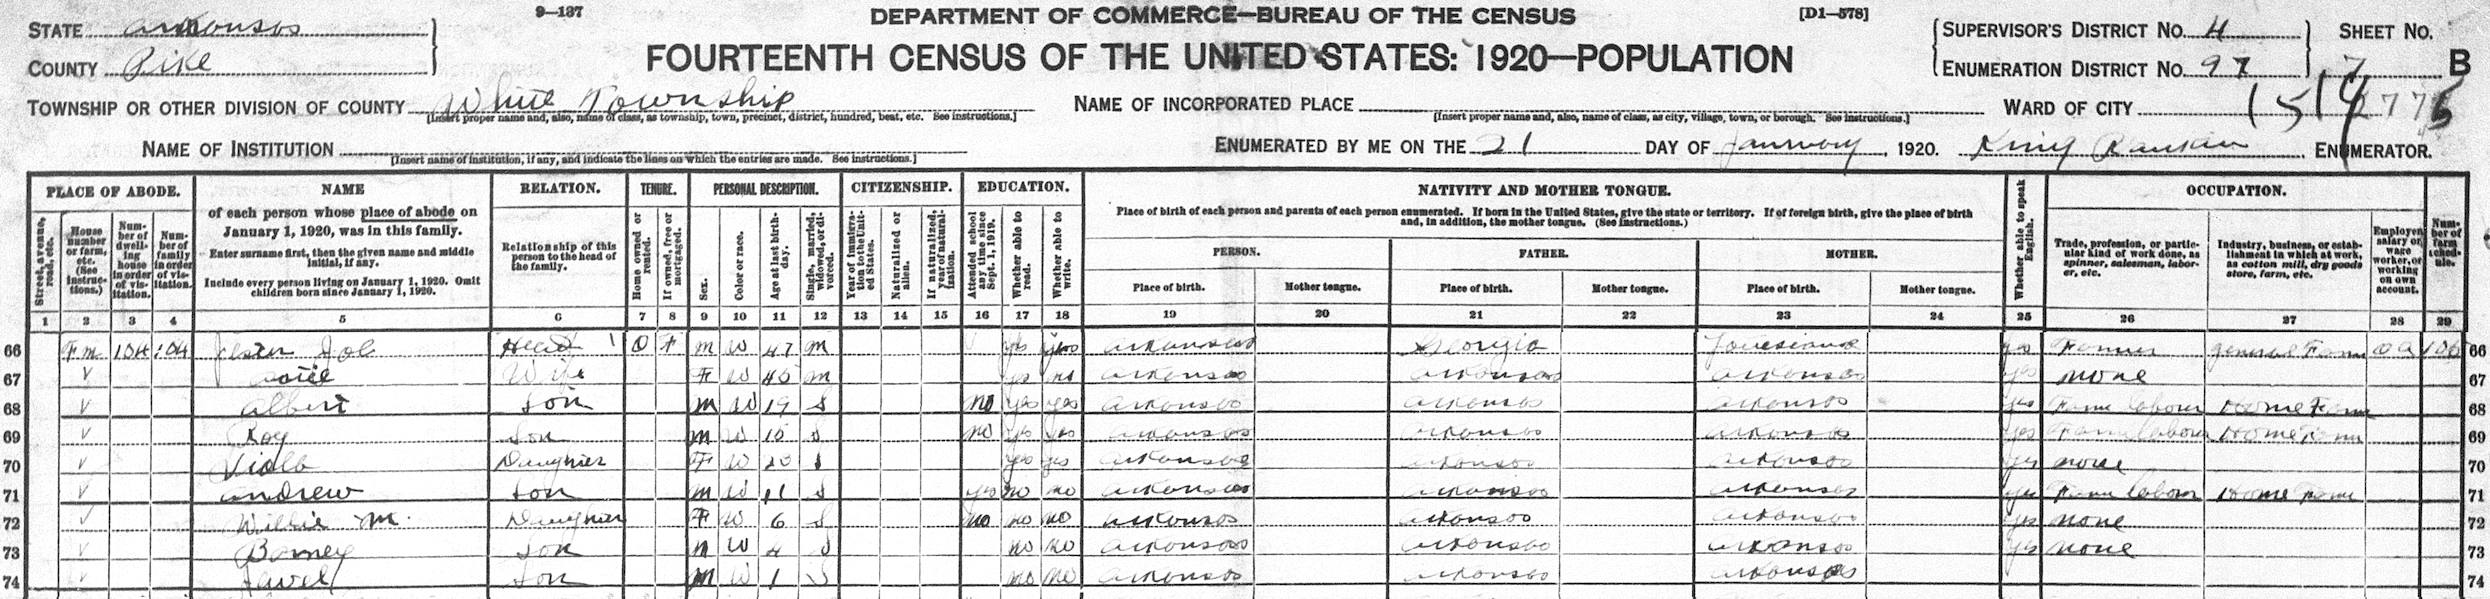 9—137
DEPARTMENT OF COMMERCE—BUREAU OF THE CENSUS
[D1—578]
STATE Arkansas
COUNTY Pike
FOURTEENTH CENSUS OF THE UNITED STATES: 1920—POPULATION
SUPERVISOR'S DISTRICT NO. 4
ENUMERATION DISTRICT NO. 97
SHEET NO.
7 B
TOWNSHIP OR OTHER DIVISION OF COUNTY White Township
[Insert proper name and, also, name of class, as township, town, precinct, district, hundred, beat, etc. See instructions.]
NAME OF INCORPORATED PLACE
[Insert proper name and, also, name of class, as city, village, town, or borough. See instructions.]
WARD OF CITY
NAME OF INSTITUTION
[Insert name of institution, if any, and indicate the lines on which the entries are made. See instructions.]
ENUMERATED BY ME ON THE 21 DAY OF January, 1920. King ENUMERATOR.
PLACE OF ABODE. NAME RELATION. TENURE. PERSONAL DESCRIPTION. CITIZENSHIP. EDUCATION. NATIVITY AND MOTHER TONGUE. OCCUPATION.
Street, avenue, road, etc.
House number or farm, etc. (See instructions.)
Number of dwelling house in order of visitation.
Number of family in order of visitation.
of each person whose place of abode on January 1, 1920, was in this family.
Enter surname first, then the given name and middle initial, if any.
Include every person living on January 1, 1920. Omit children born since January 1, 1920.
Relationship of this person to the head of the family.
Home owned or rented.
If owned, free or mortgaged.
Sex.
Color or race.
Age at last birthday.
Single, married, widowed, or divorced.
Year of immigration to the United States.
Naturalized or alien.
If naturalized, year of naturalization.
Attended school any time since Sept. 1, 1919.
Whether able to read.
Whether able to write.
Place of birth of each person and parents of each person enumerated. If born in the United States, give the state or territory. If of foreign birth, give the place of birth and, in addition, the mother tongue. (See instructions.)
PERSON. FATHER. MOTHER.
Place of birth. Mother tongue. Place of birth. Mother tongue. Place of birth. Mother tongue.
Whether able to speak English.
Trade, profession, or particular kind of work done, as spinner, salesman, laborer, etc.
Industry, business, or establishment in which at work, as cotton mill, dry goods store, farm, etc.
Employer, salary or wage worker, or working on own account.
Number of farm schedule.
1 2 3 4 5 6 7 8 9 10 11 12 13 14 15 16 17 18 19 20 21 22 23 24 25 26 27 28 29
66 Fm 104 104 Joe Head 1 O F M W 47 M yes yes Arkansas Georgia Louisiana yes Farmer general Farm OA 66
67 Wife F W 45 M yes no Arkansas Arkansas Arkansas yes none 67
68 Albert Son M W 19 S no yes yes Arkansas Arkansas Arkansas yes Farm labour Home Farm 68
69 Roy Son M W 15 S no yes yes Arkansas Arkansas Arkansas yes Farm labour Home Farm 69
70 Viola Daughter F W 20 S yes yes Arkansas Arkansas Arkansas yes none 70
71 Andrew Son M W 11 S yes no no Arkansas Arkansas Arkansas yes Farm labour Home Farm 71
72 Willie M. Daughter F W 6 S no no no Arkansas Arkansas Arkansas yes none 72
73 Barney Son M W 4 S no no Arkansas Arkansas Arkansas yes none 73
74 Son M W 1 S no no Arkansas Arkansas Arkansas 74